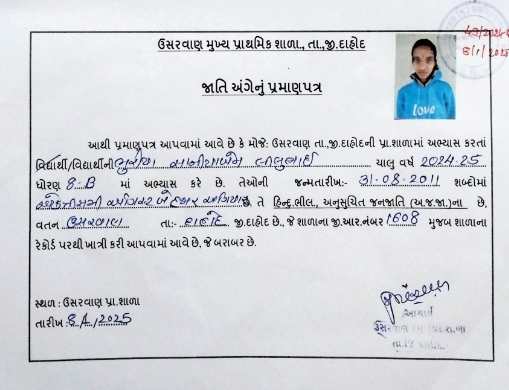 ઉસરવાણ મુખ્ય પ્રાથમિક શાળા., તા.,જી.દાહોદ
જાતિ અંગેનું પ્રમાણપત્ર
love
આથી પ્રમાણપત્ર આપવામાં આવે છે કે મોજે: ઉસરવાણ તા.,જી.દાહોદની પ્રા.શાળામાં અભ્યાસ કરતાં
વિદ્યાર્થી/વિદ્યાર્થીની ચાલુ વર્ષ 2024-25
ધોરણ 8-B માં અભ્યાસ કરે છે. તેઓની જન્મતારીખ:- 31-08-2011 શબ્દોમાં
તે હિન્દુ-ભીલ, અનુસુચિત જનજાતિ (અ.જ.જા.)ના છે.
વતન ઉસરવાણ તા:- દાહોદ જી.દાહોદ છે, જે શાળાના જી.આર.નંબર 1608 મુજબ શાળાના
રેકોર્ડ પરથી ખાત્રી કરી આપવામાં આવે છે, જે બરાબર છે.
સ્થળ : ઉસરવાણ પ્રા.શાળા
તારીખ :8/1/2025
આચાર્ય